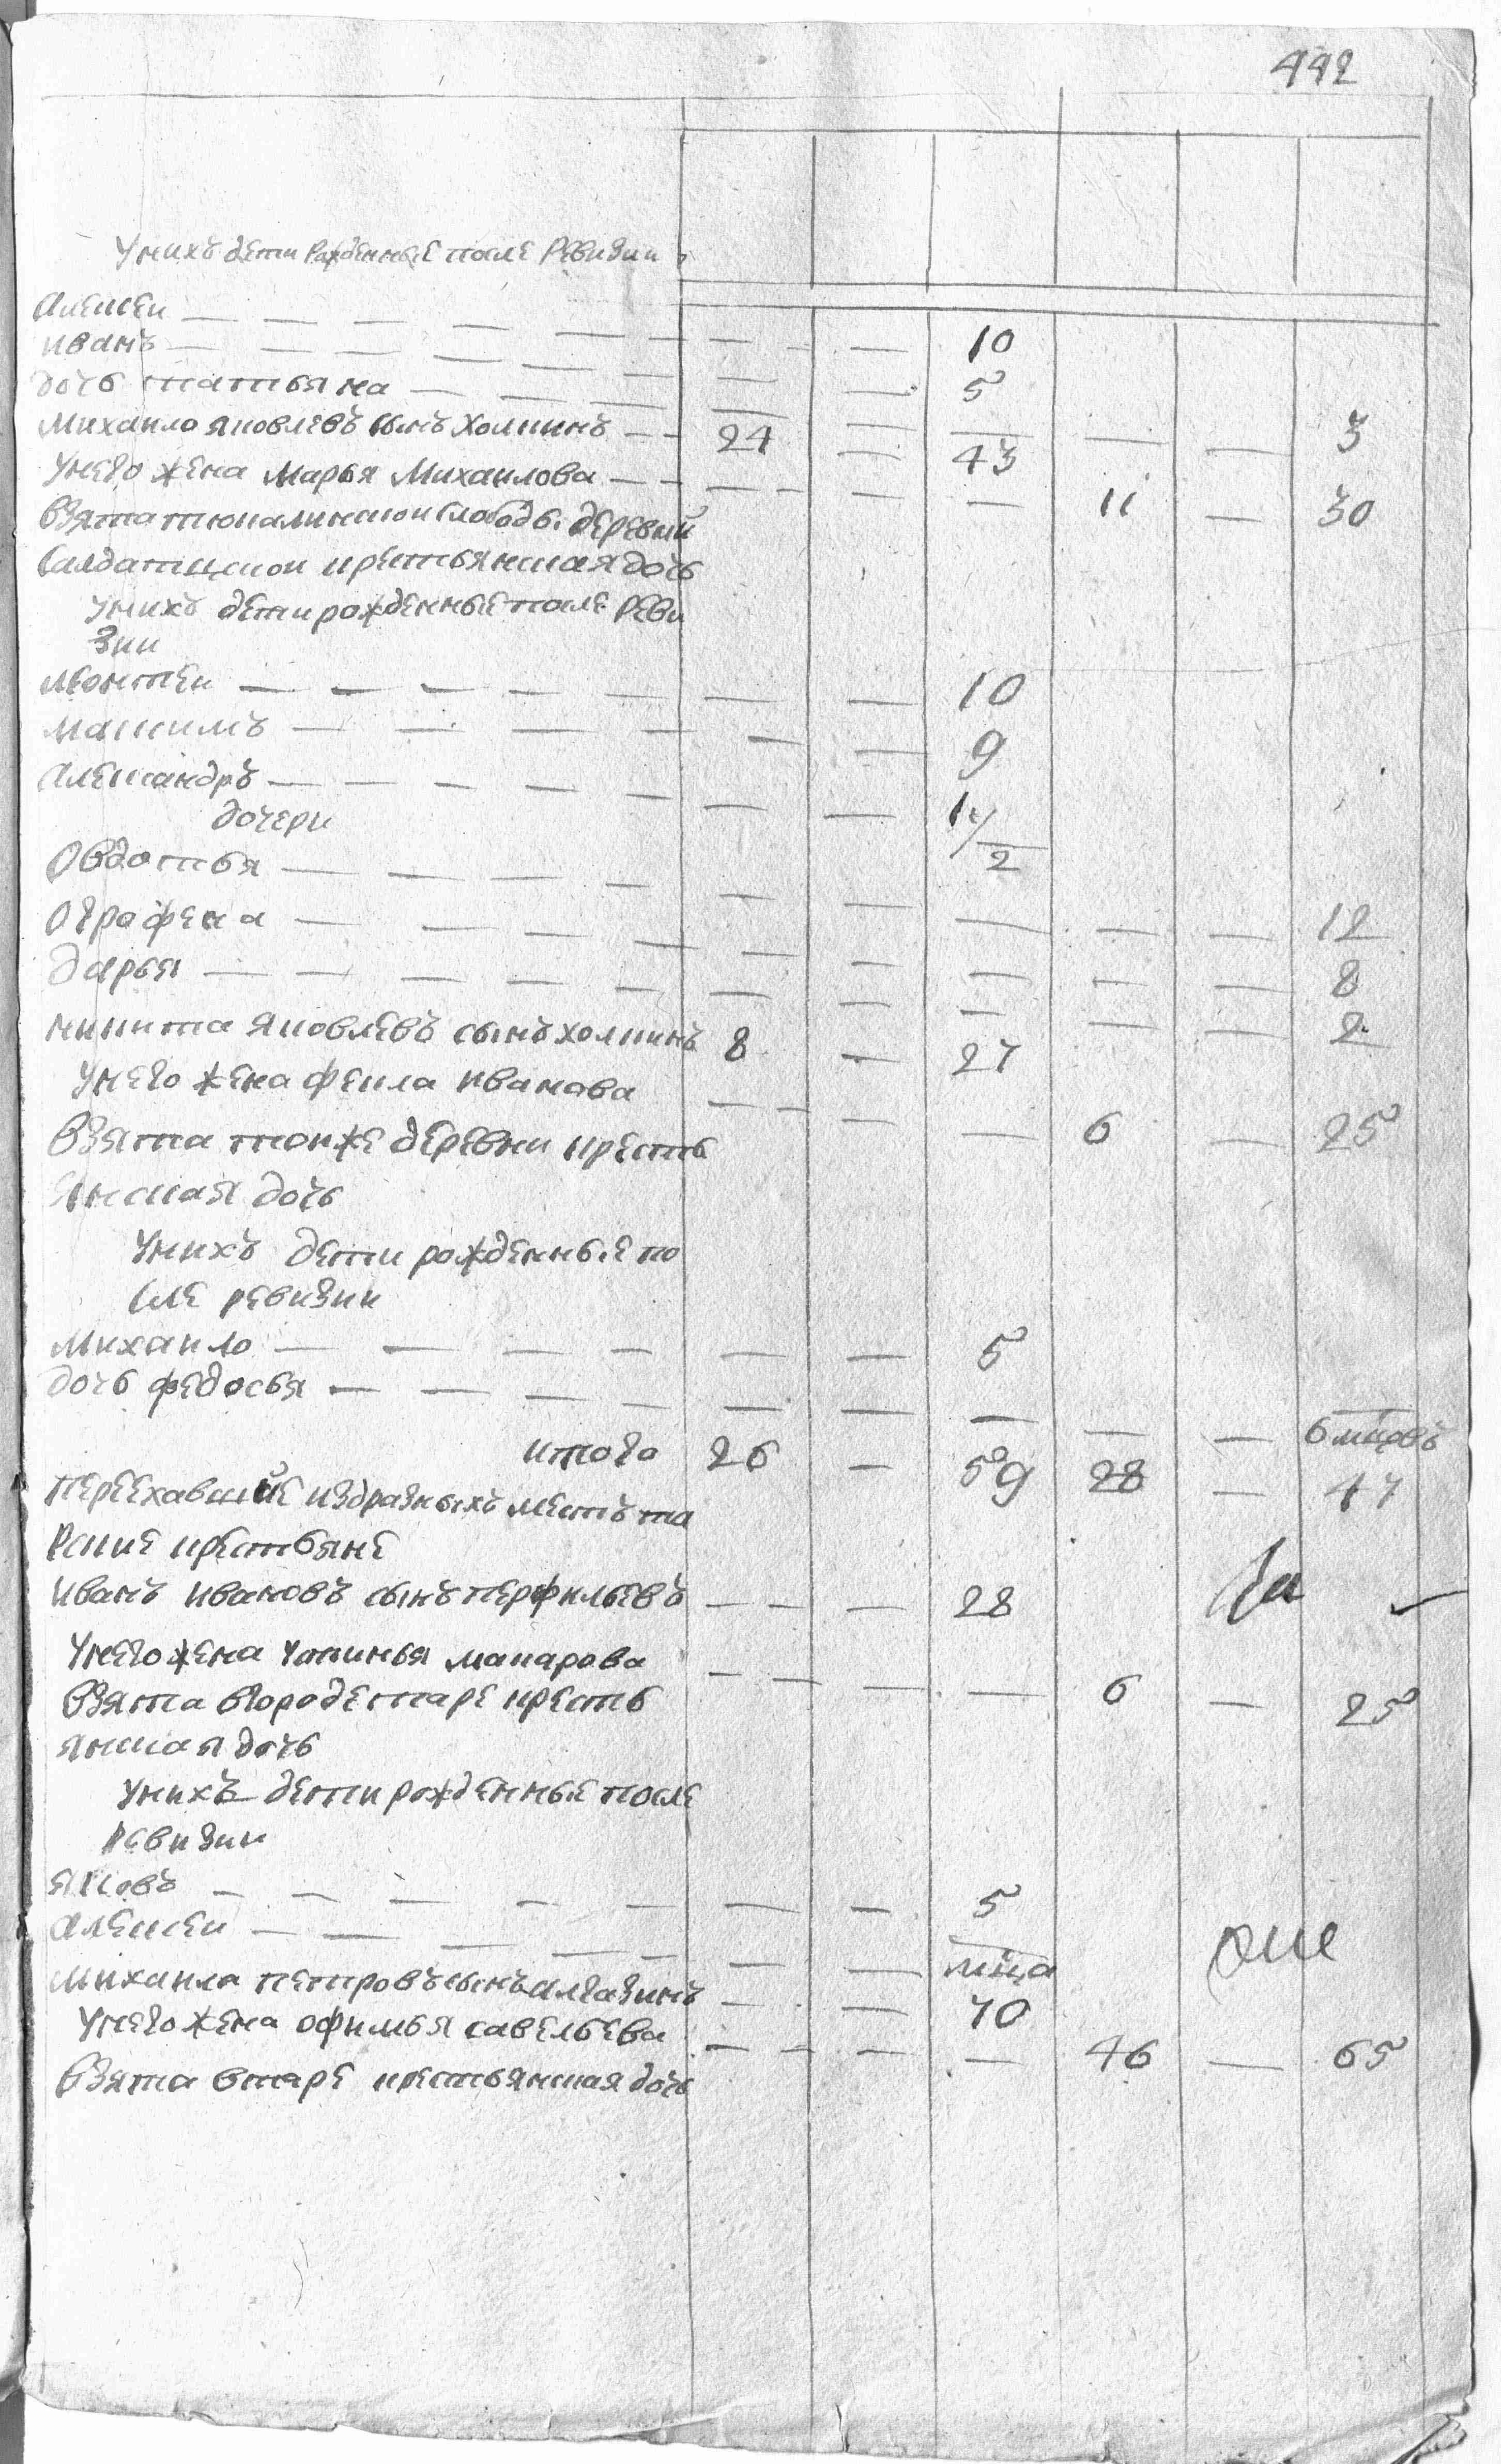 442
У нихъ дети рожденные после ревизии
Алексеи — — — — — — — — 10
иванъ — — — — — — — — 5
дочь татьяна — — — — — — — — — — 3
михаило яковлевъ сынъ холкинъ — — 24 — 43
У него жена марья михаилова — — — — — — 11 — 30
взята тюкалинскои слободы деревни
Салдатцкои крестьянская дочь
У нихъ дети рожденные после реви
зии
леонтеи — — — — — — — 10
максимъ — — — — — — 9
Александръ — — — — — — — 1 1/2
дочери
Овдотья — — — — — — — — — 12
Ографена — — — — — — — — — 8
дарья — — — — — — — — — — 2
никита яковлевъ сынъ холкинъ 8 — 27
У него жена фекла иванова — — — — 6 — 25
Взята тоиже деревни кресть
янская дочь
У нихъ дети рожденные по
сле ревизии
михаило — — — — — — 5
дочь федосья — — — — — — — — — 6 мцовъ
итого 26 — 59 28 — 47
переехавшие из разныхъ местъ та
рские крестьяне
иванъ ивановъ сынъ перфильевъ — — — 28
У него жена Устинья макарова — — — — 6 — 25
взята в городе таре кресть
янская дочь
У нихъ дети рожденные после
ревизии
яковъ — — — — — — — 5
алексеи — — — — — — — мца
михаила петровъ сынъ алгазинъ — — 70
У него жена офимья савельева — — — — 46 — 65
взята в таре крестьянская дочь